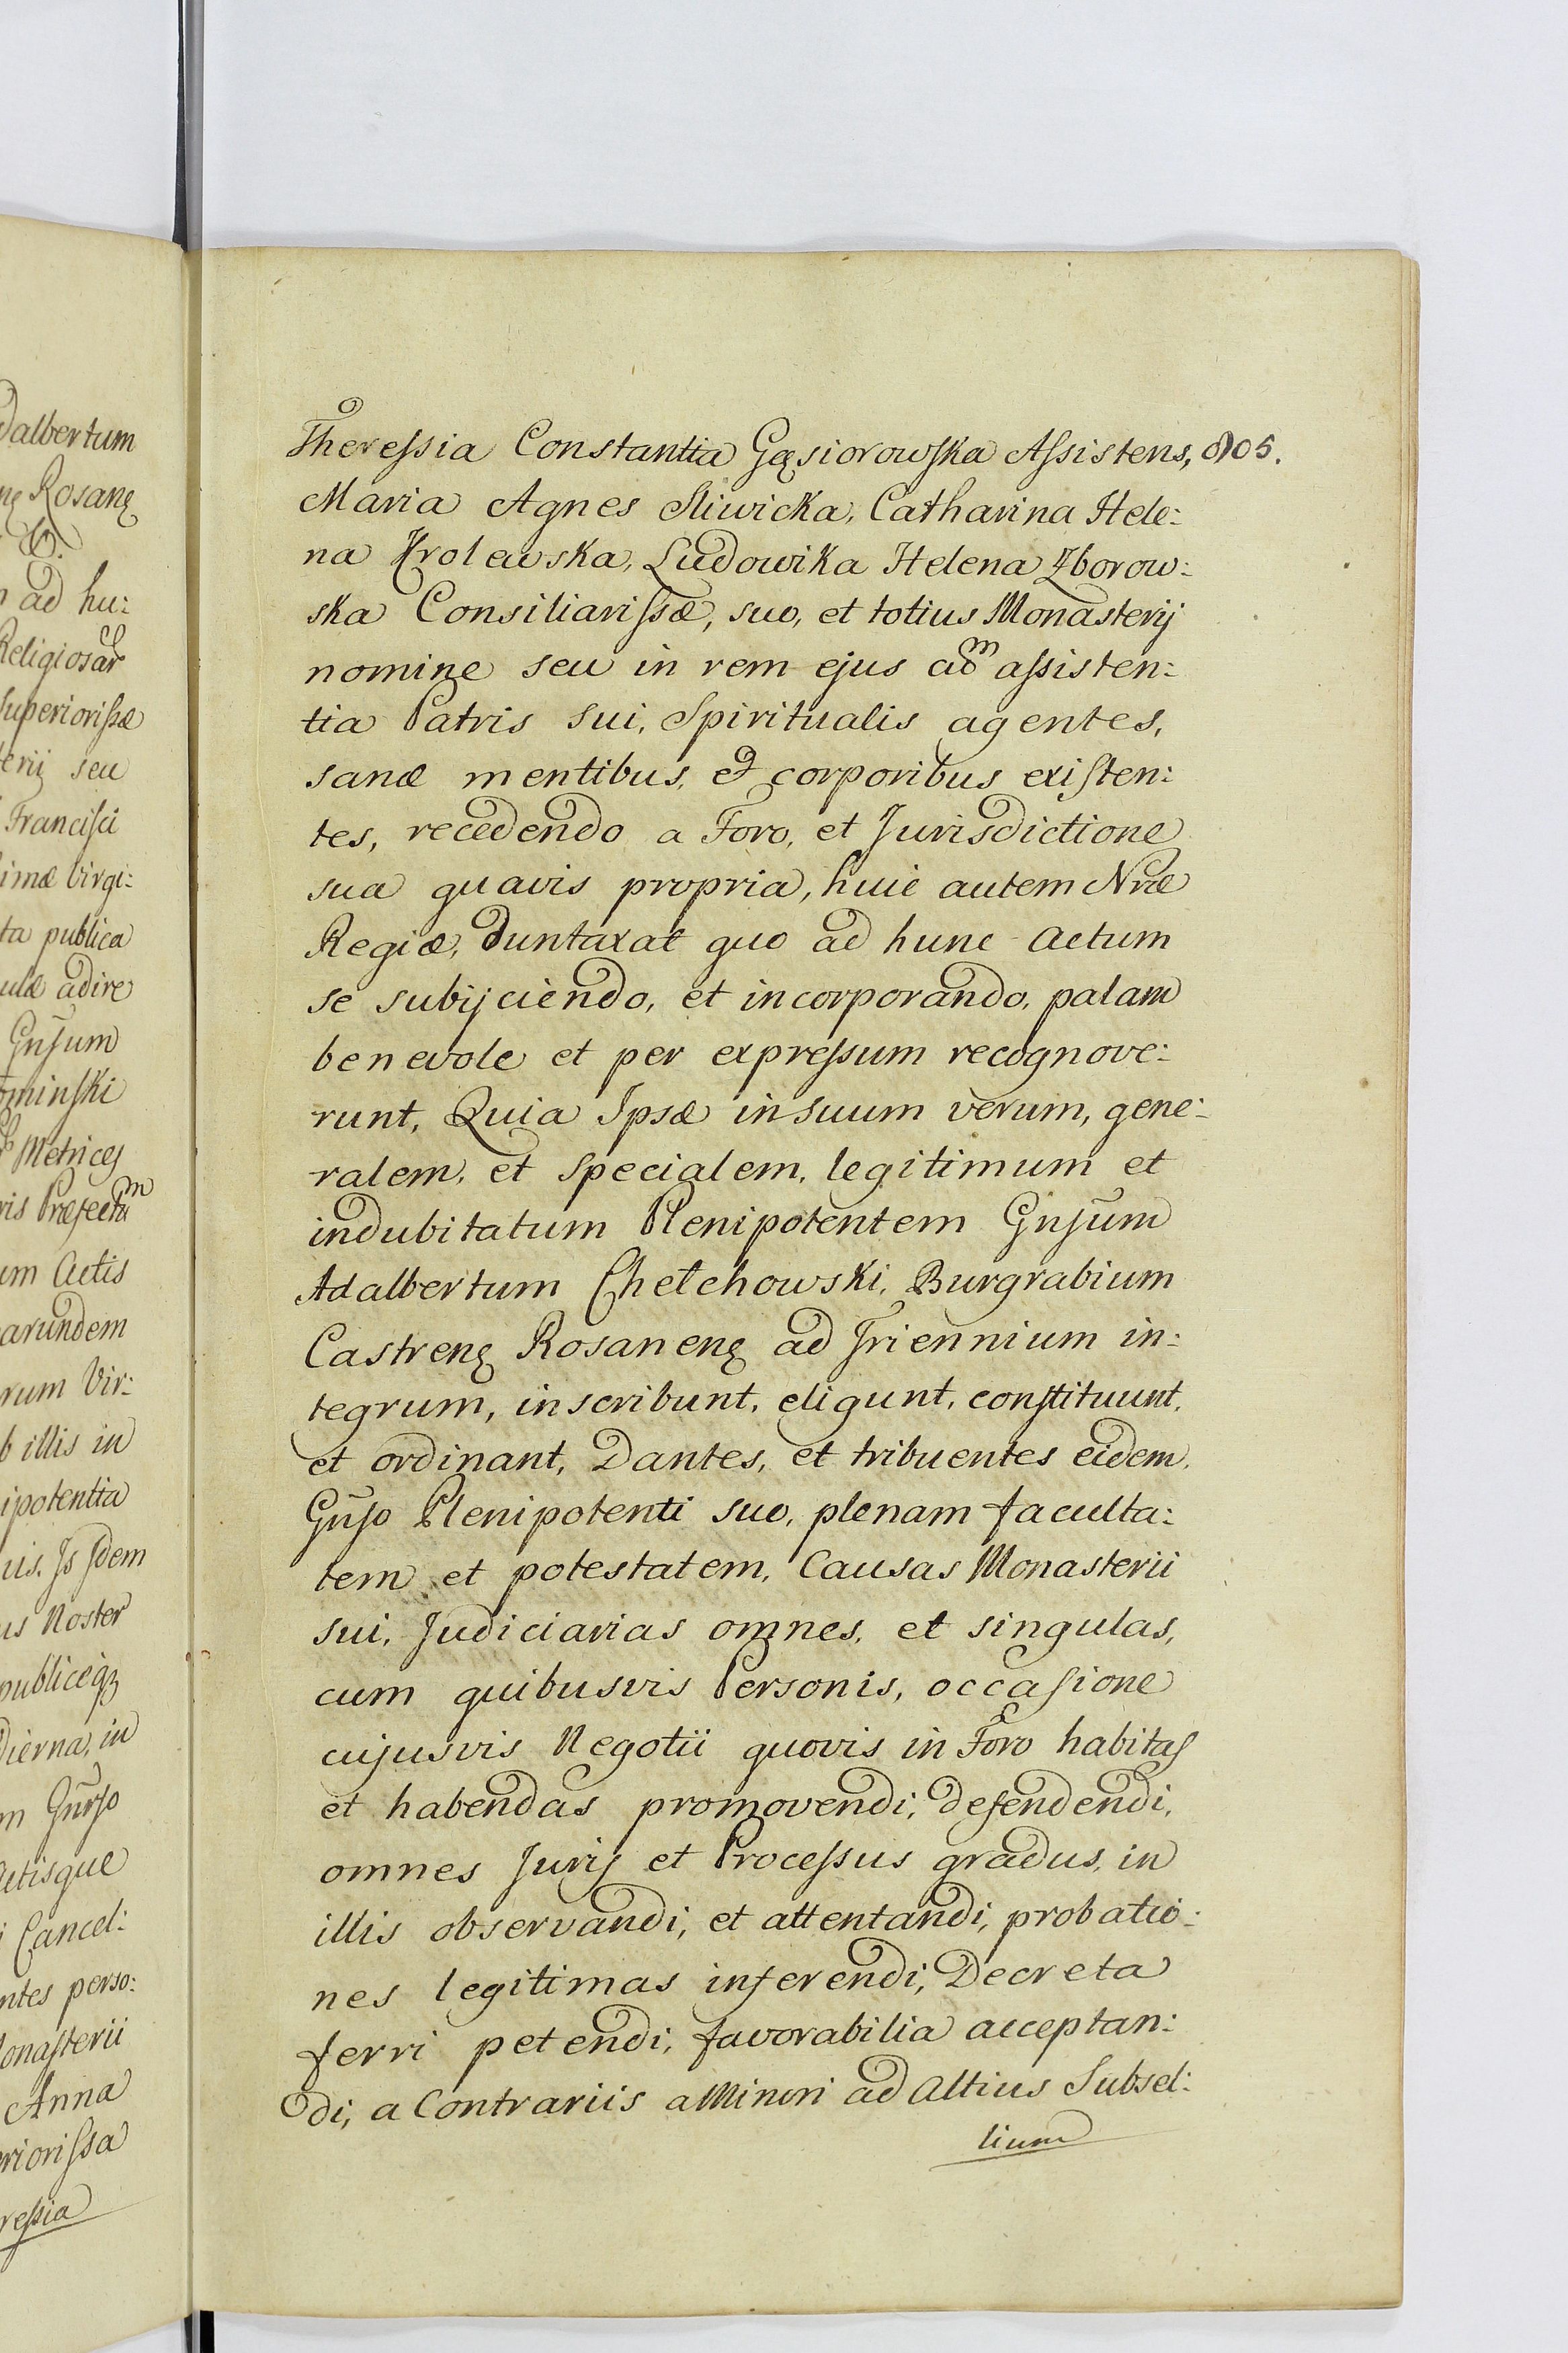 dalbertum
Rosanę
ad hu:
Religiosar
Superiorissæ
terii seu
Francisci
simæ Virgi:
ta publica
ulæ adire
Gnsum
ominski
Metrices
ris Præfectum
um Actis
earundem
rum Vir:
b illis in
ipotentia
uis. Is Idem
us Noster
publiceqз
dierna, in
m Gnrso
Actisque
Cancel:
ntes perso:
Monasterii
Anna
riorissa
ressia
Theressia Constantia Gąsiorowska Assistens, 805.
Maria Agnes Sliwicka, Catharina Hele:
na Krolewska, Ludowika Helena Zborow:
ska Consiliarissæ, suo, et totius Monasterij
nomine seu in rem ejus adm assisten:
tia Patris sui, Spiritualis agentes,
sanæ mentibus, et corporibus existen:
tes, recedendo a Foro, et Jurisdictione
sua quavis propria, huic autem Nræ
Regiæ, duntaxat quo ad hunc Actum
se subijciendo, et incorporando, palam
benevole et per expressum recognove:
runt, Quia Ipsæ in suum verum, gene:
ralem, et specialem, legitimum et
indubitatum Plenipotentem Gnsum
Adalbertum Chełchowski, Burgrabium
Castrenę Rosanenę ad Triennium in:
tegrum, inscribunt, eligunt, constituunt,
et ordinant, Dantes, et tribuentes eidem,
Gnso Plenipotenti suo, plenam faculta:
tem et potestatem, Causas Monasterii
sui, Judiciarias omnes, et singulas,
cum quibusvis Personis, occasione
cujusvis Negotii quovis in Foro habitas
et habendas promovendi, defendendi,
omnes Juris et Processus gradus, in
illis observandi, et attentandi, probatio:
nes legitimas inferendi, Decreta
ferri petendi, favorabilia acceptan:
di, a Contrariis a Minori ad Altius Subsel:
lium